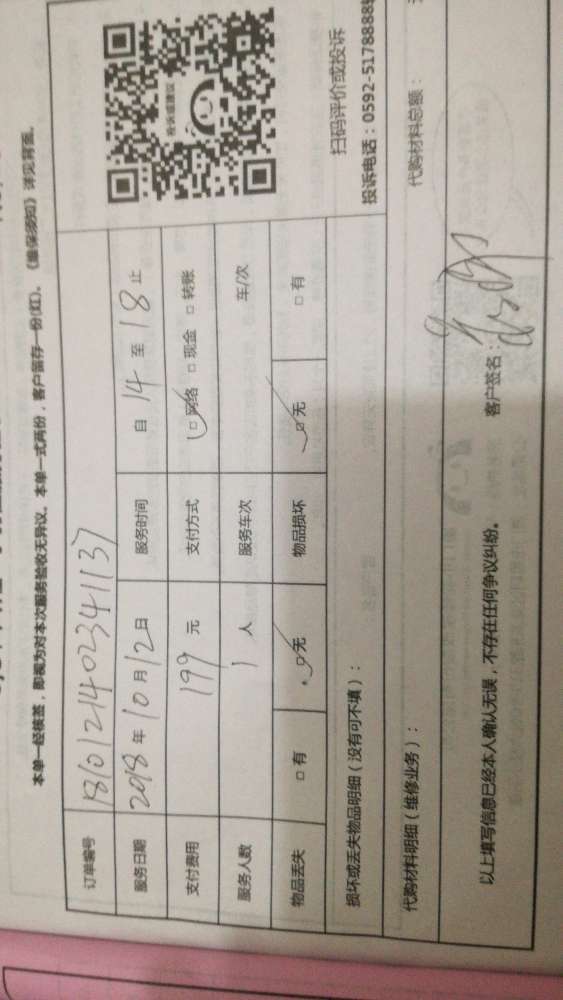 本单一经核签，即视为对本次服务验收无异议。本单一式两份，客户留存一份(红)。《维保须知》详见背面。
订单编号 1810121402341137
服务日期 2018 年 10 月 12 日 服务时间 自 14 至 18 止
支付费用 199 元 支付方式 □网络 □现金 □转账
服务人数 1 人 服务车次 车/次
物品丢失 □有 □无 物品损坏 □无 □有
投诉或建议
扫码评价或投诉
投诉电话：0592-5178888
损坏或丢失物品明细（没有可不填）：
代购材料明细（维修业务）： 代购材料总额：
以上填写信息已经本人确认无误，不存在任何争议纠纷。 客户签名：